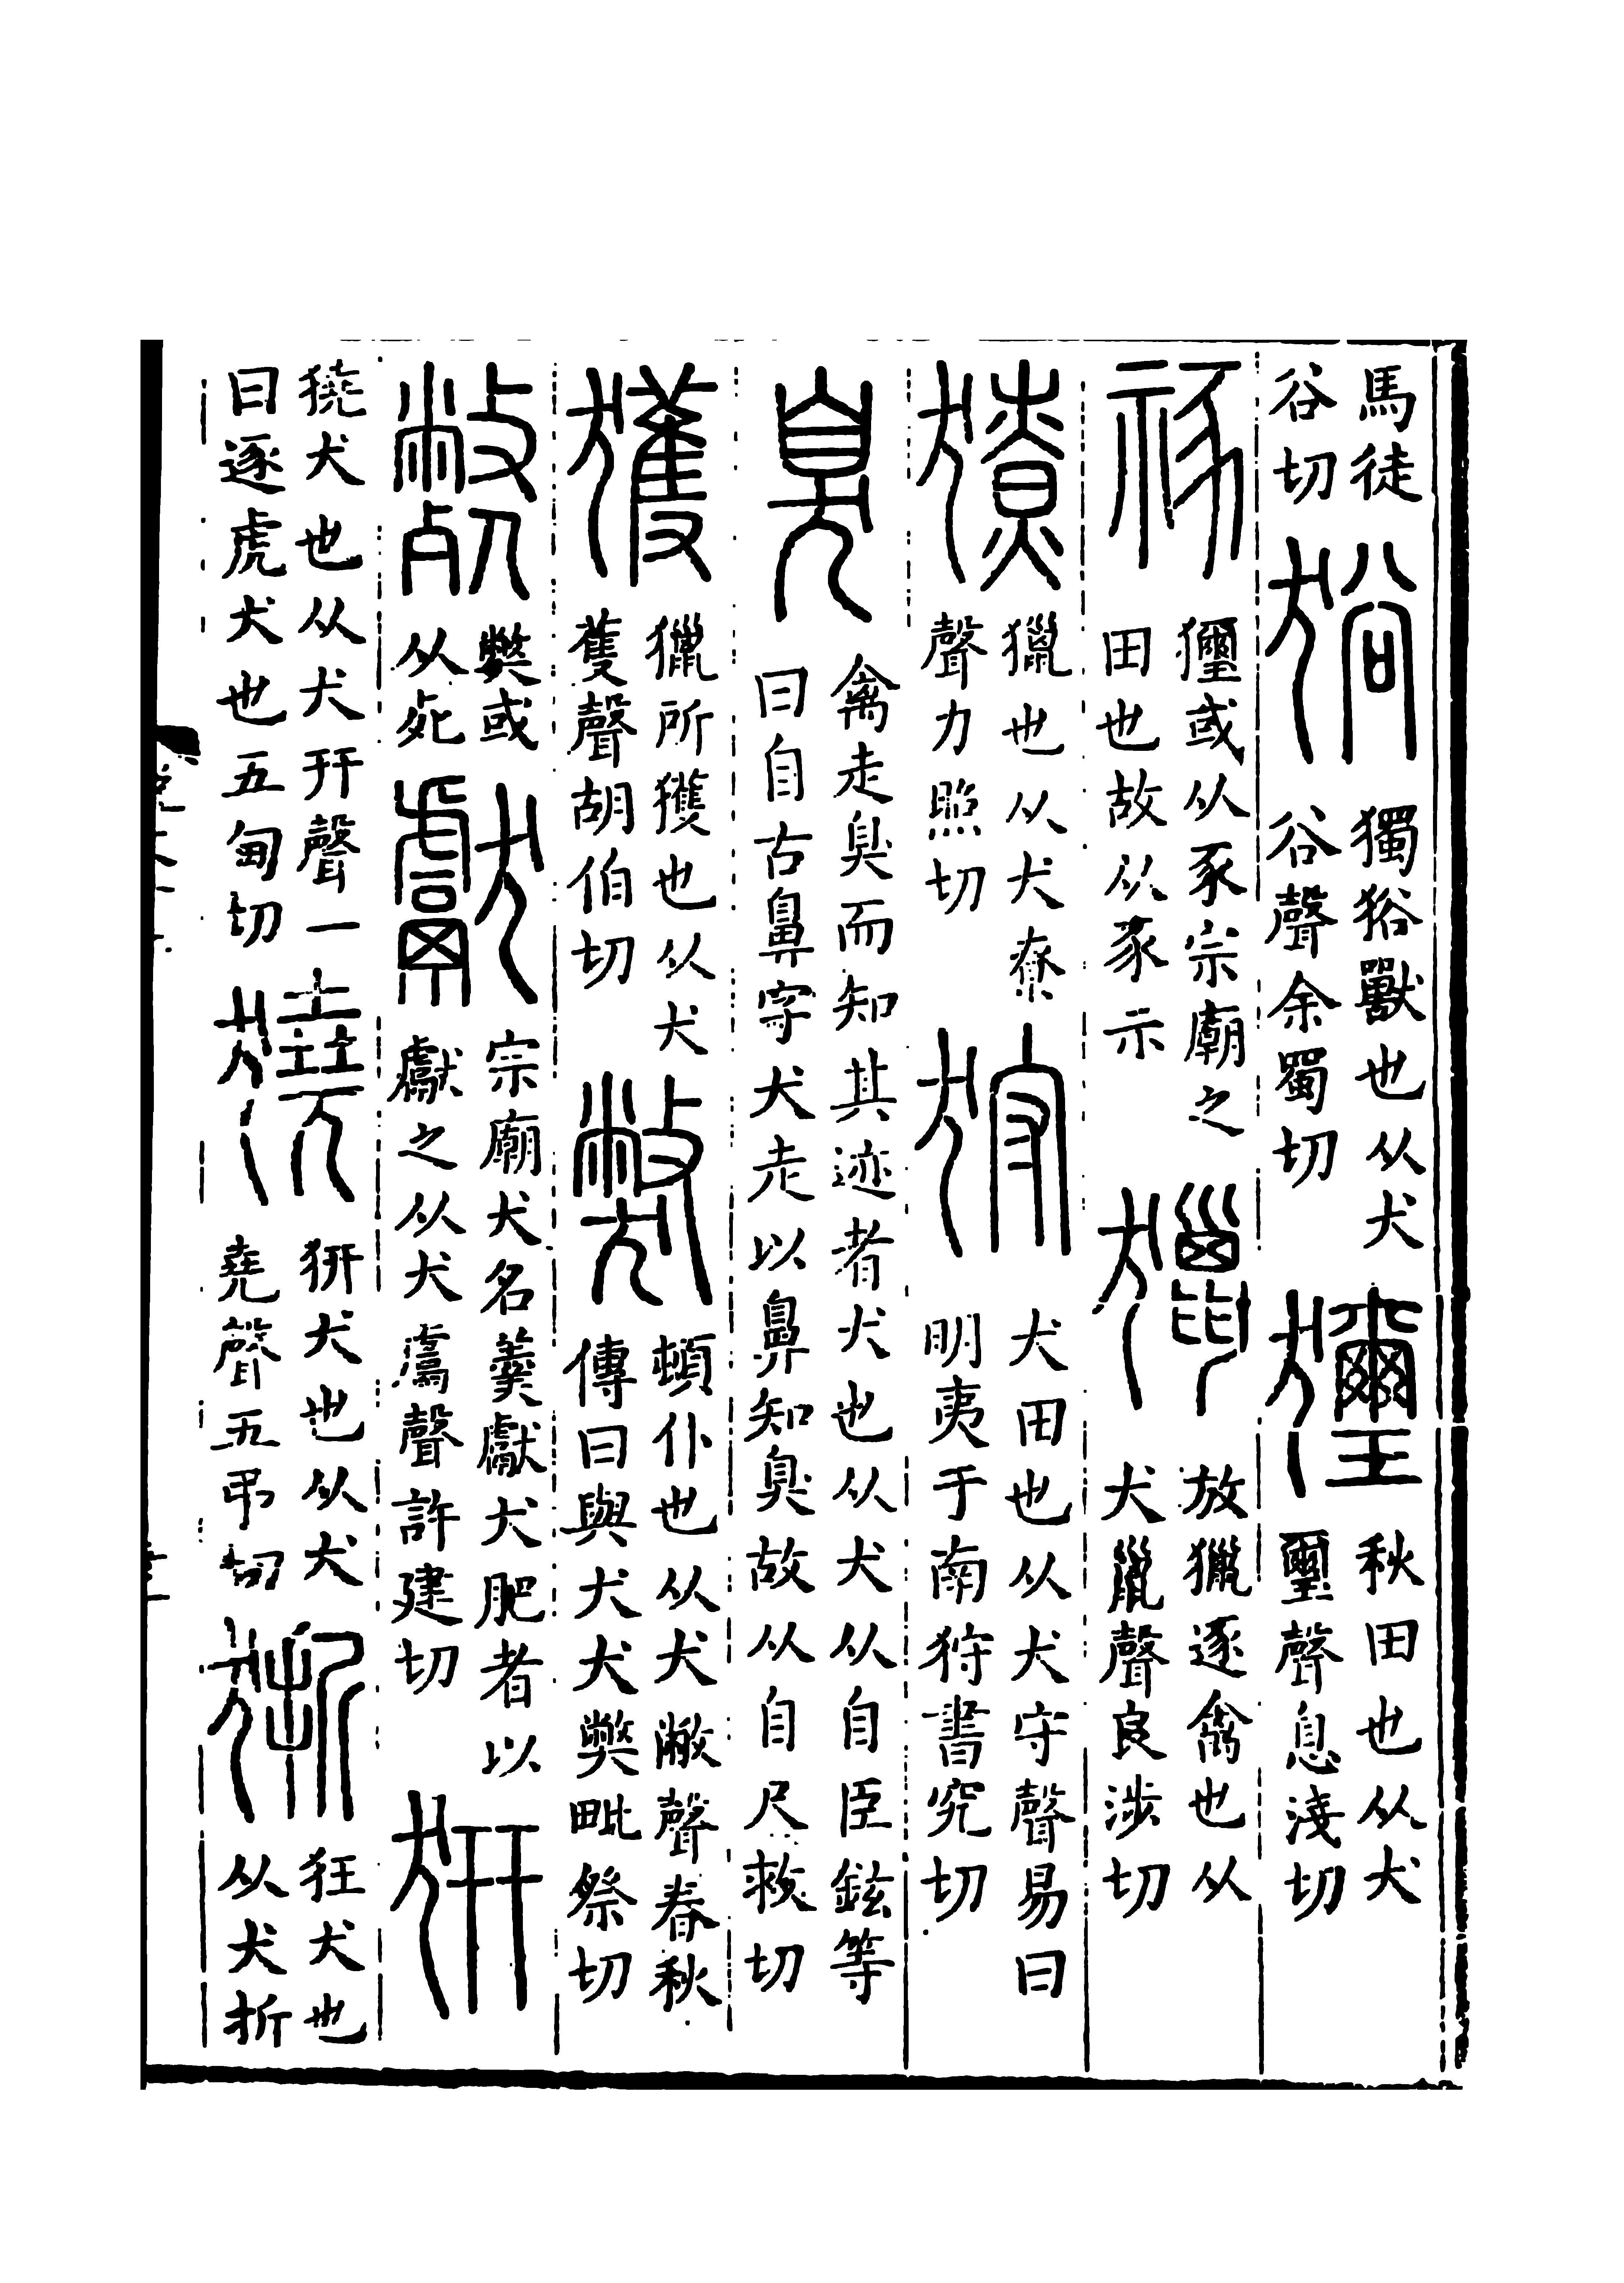 馬徒谷切𤞞獨𤞞獸也从犬谷聲余蜀切𤣔秋田也从犬璽聲息淺切
𤣔或从豕宗廟之田也故从豕示獵放獵逐禽也从犬巤聲良涉切
獠獵也从犬尞聲力照切狩犬田也从犬守聲易曰明夷于南狩書究切
臭禽走臭而知其迹者犬也从犬从自臣鉉等曰自古鼻字犬走以鼻知臭故从自尺救切
獲獵所獲也从犬蒦聲胡伯切獘頓仆也从犬敝聲春秋傳曰與犬犬獘毗祭切
斃獘或从死獻宗廟犬名羹獻犬肥者以獻之从犬鬳聲許建切
獟犬也从犬幵聲一曰逐虎犬也五甸切獟犬也从犬堯聲五弔切狾狂犬也从犬折